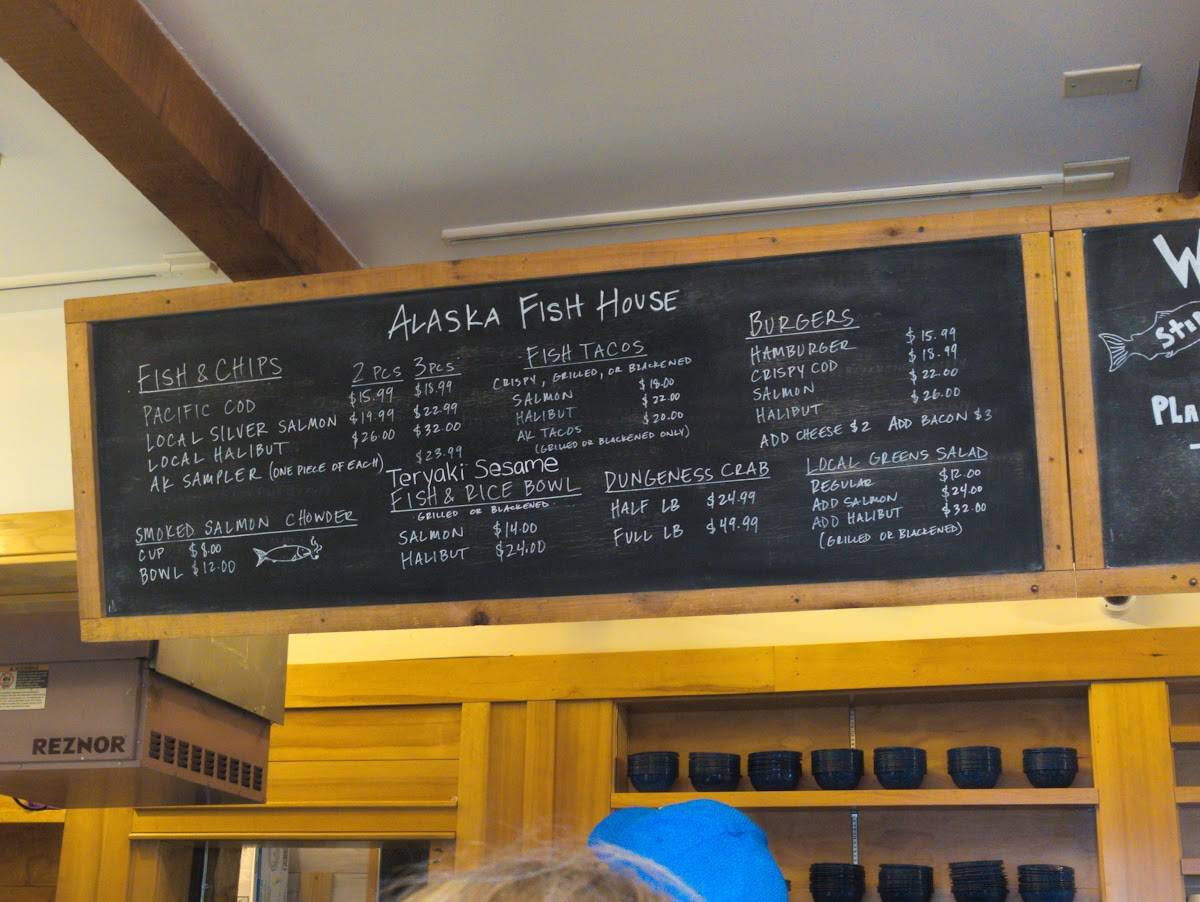 ALASKA FISH HOUSE
FISH & CHIPS 2 PCS 3 PCS
PACIFIC COD $15.99 $18.99
LOCAL SILVER SALMON $19.99 $22.99
LOCAL HALIBUT $26.00 $32.00
AK SAMPLER (ONE PIECE OF EACH) $23.99
SMOKED SALMON CHOWDER
CUP $8.00
BOWL $12.00
FISH TACOS
CRISPY, GRILLED, OR BLACKENED
SALMON $18.00
HALIBUT $22.00
AK TACOS $20.00
(GRILLED OR BLACKENED ONLY)
Teryaki Sesame
FISH & RICE BOWL
GRILLED OR BLACKENED
SALMON $14.00
HALIBUT $24.00
BURGERS
HAMBURGER $15.99
CRISPY COD $18.99
SALMON $22.00
HALIBUT $26.00
ADD CHEESE $2 ADD BACON $3
DUNGENESS CRAB
HALF LB $24.99
FULL LB $49.99
LOCAL GREENS SALAD
REGULAR $12.00
ADD SALMON $24.00
ADD HALIBUT $32.00
(GRILLED OR BLACKENED)
W
PLA
REZNOR